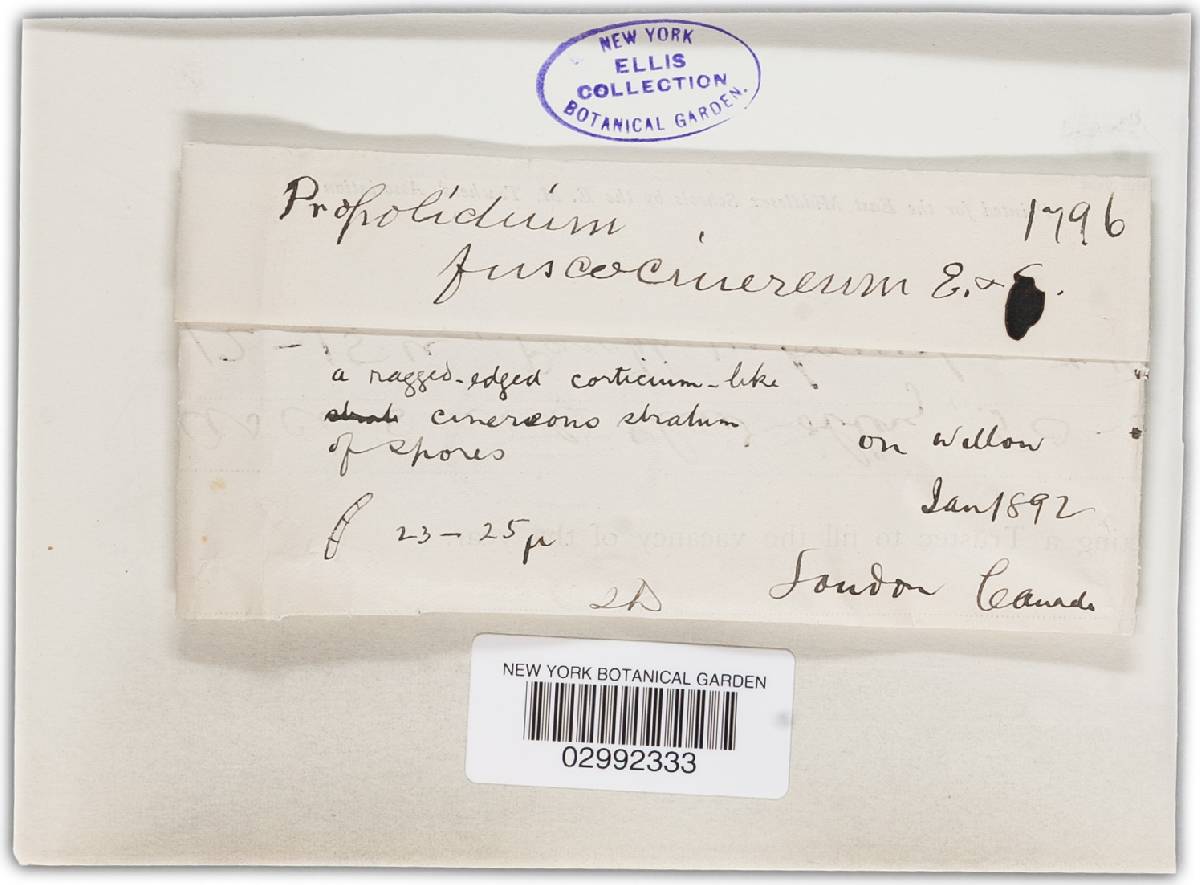 NEW YORK
ELLIS
COLLECTION
BOTANICAL GARDEN.
Propolidium 1796
fuscocinereum E. &
a ragged-edged corticium-like
cinereous stratum
of spores
on Willow
Jan 1892
23-25 µ
London Canada
NEW YORK BOTANICAL GARDEN
02992333